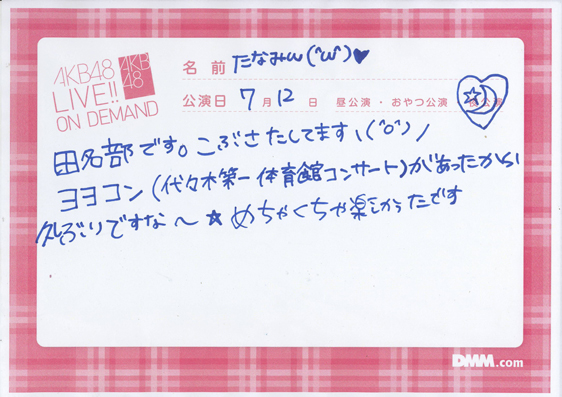 AKB48
LIVE!!
ON DEMAND
AKB
48
名前 たなみん(^ω^)♥
公演日 7月12日 昼公演・おやつ公演・夜公演
田名部です。こぶさたしてます、(^o^)ノ
ヨヨコン(代々木第一体育館コンサート)があったから
久しぶりですな〜★めちゃくちゃ楽しかったです
DMM.com